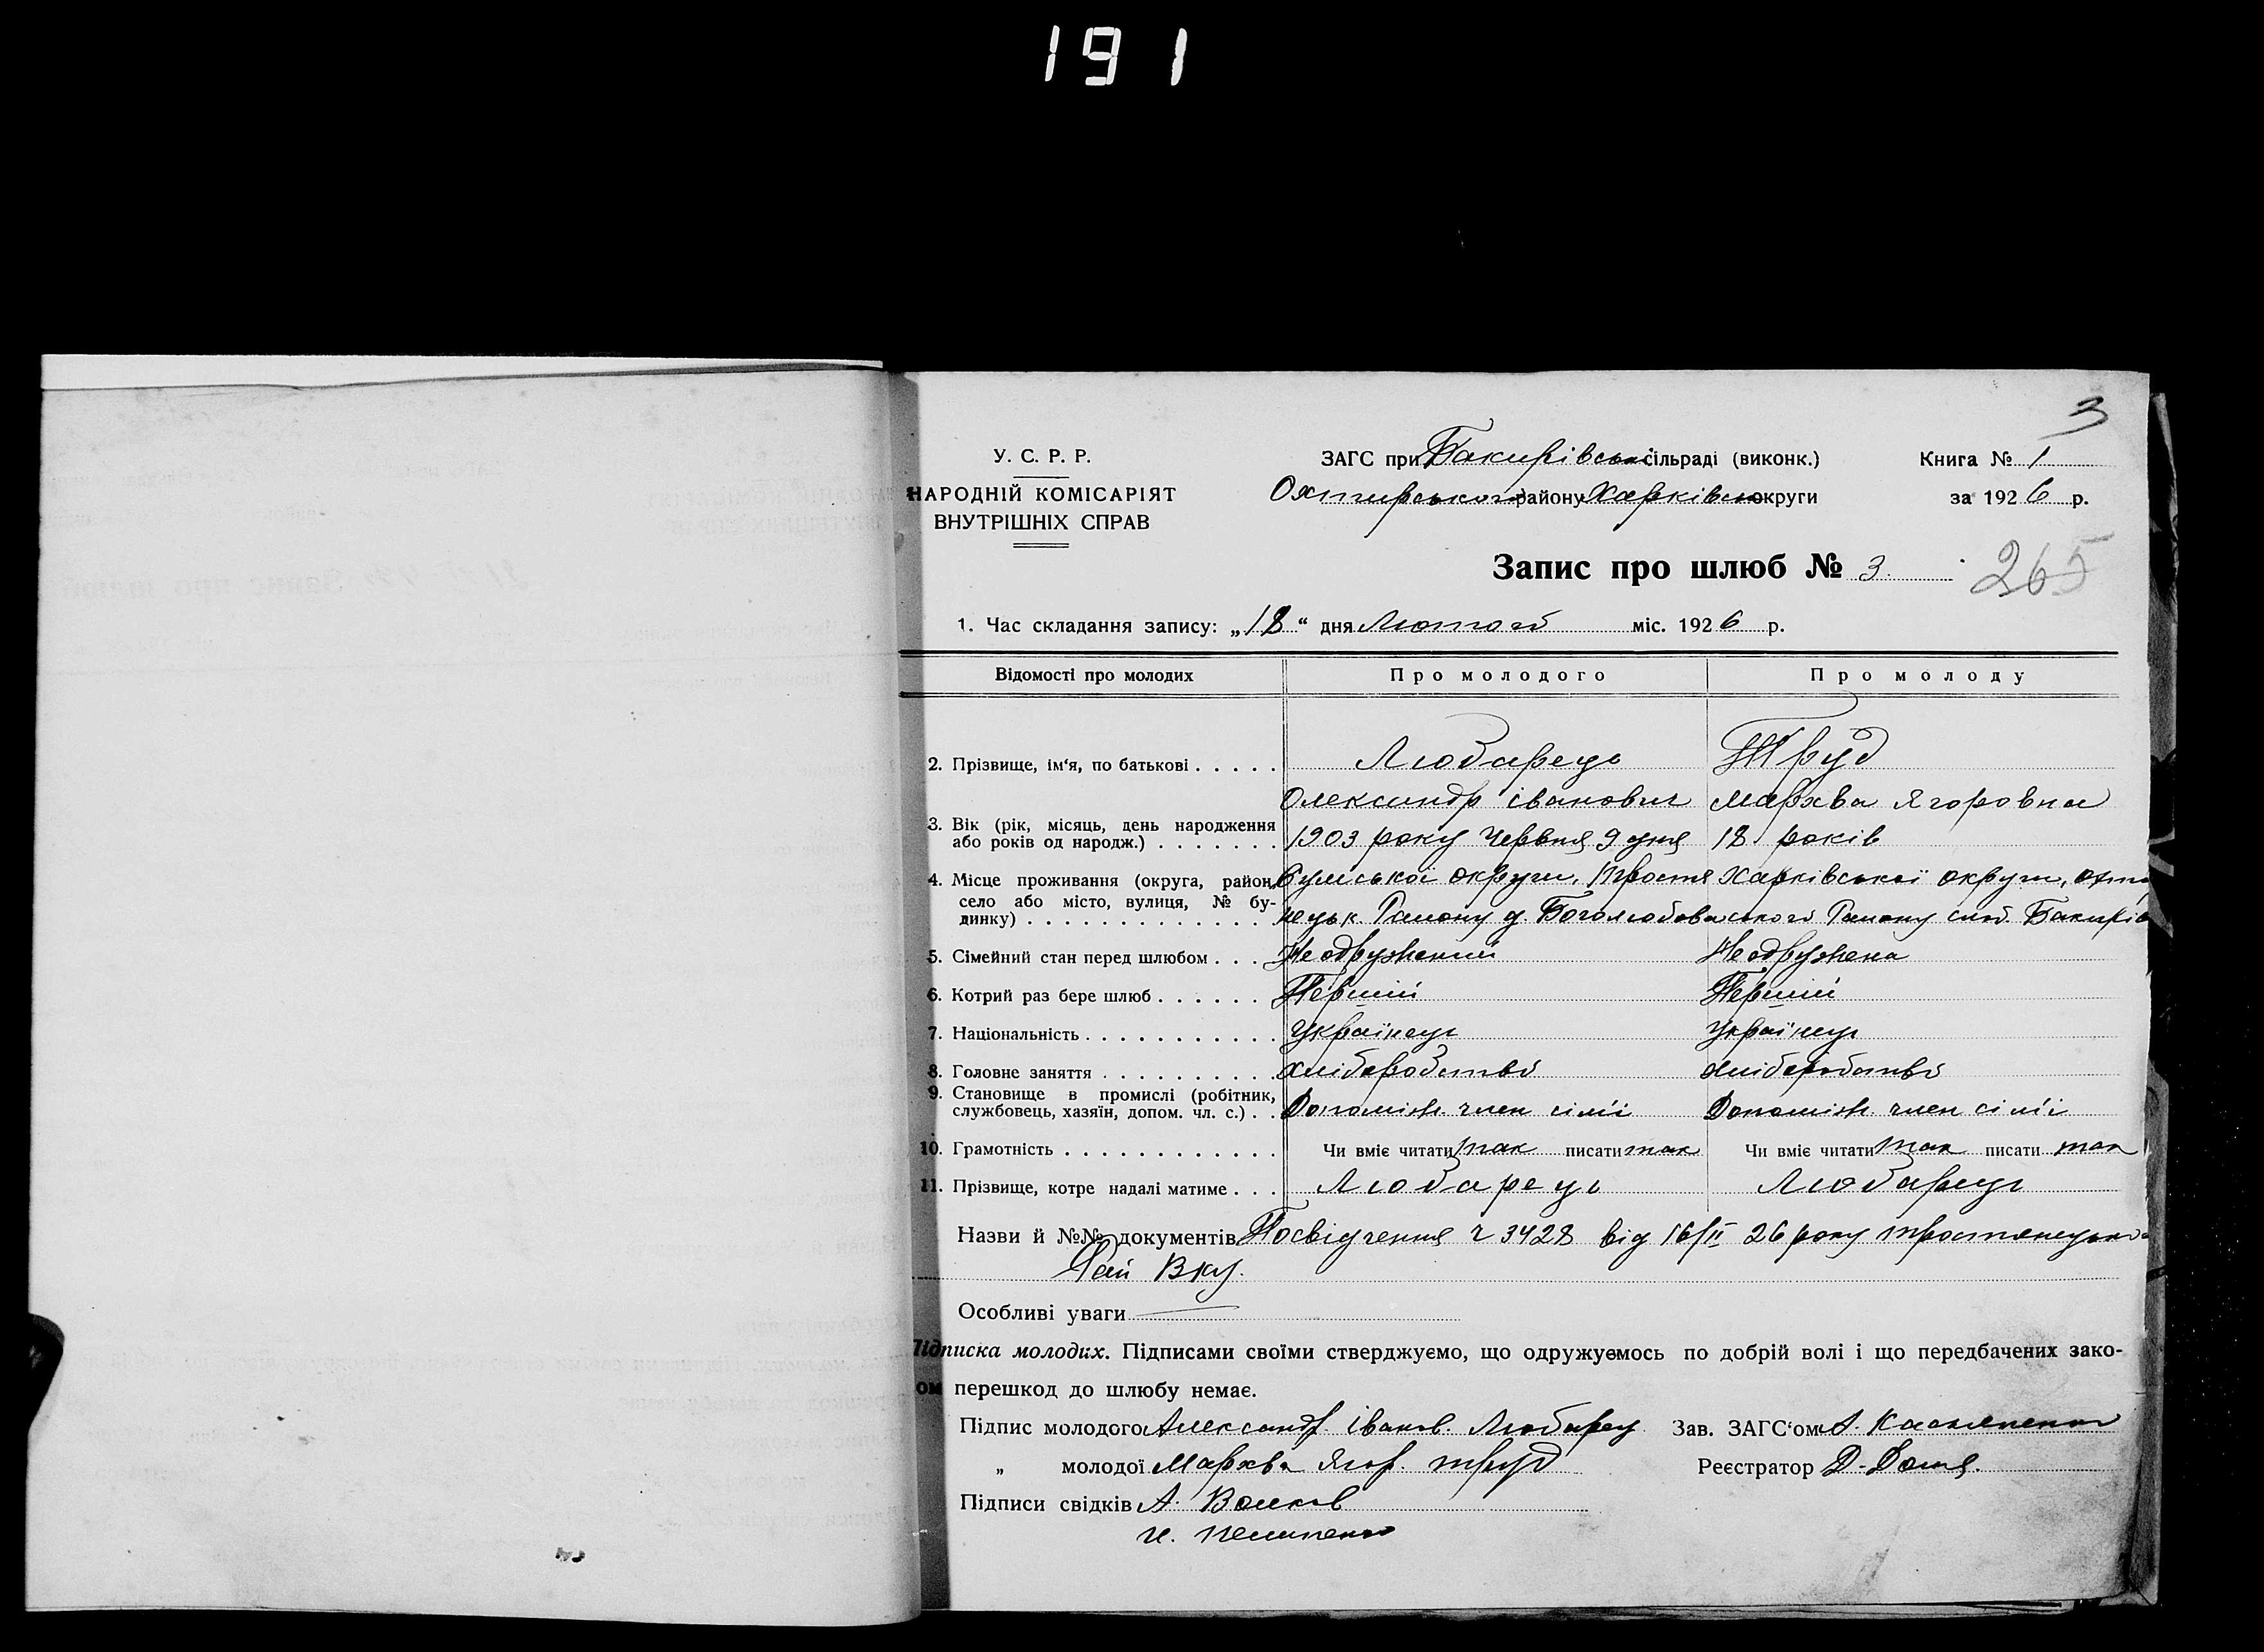 191
3
У. С. Р. Р.
НАРОДНІЙ КОМІСАРІЯТ
ВНУТРІШНІХ СПРАВ
ЗАГС при Бакирівській сільраді (виконк.)
Охтирського району Харківськ округи
Книга № 1
за 1926 р.
Запис про шлюб № 3.
265
1. Час складання запису: „18“ дня Лютого міс. 1926 р.
Відомості про молодих Про молодого Про молоду
2. Прізвище, ім‘я, по батькові . . . . . Любарець Труд
Олександр іванович Мархва Ягоровна
3. Вік (рік, місяць, день народження
або років од народж.) . . . . . . . 1903 року Червня 9 дня 18 років
4. Місце проживання (округа, район, Сумської округи, Тростя Харківської округи, Охти
село або місто, вулиця, № бу-
динку) . . . . . . . . . . . . . . нецьк. Району д. Боголюбова ського Району слоб. Бакирів
5. Сімейний стан перед шлюбом . . . Неодружений Неодружена
6. Котрий раз бере шлюб . . . . . . Первий Первий
7. Національність . . . . . . . . . . . Українець Українець
8. Головне заняття . . . . . . . . . . хліборобство хліборобство
9. Становище в промислі (робітник,
службовець, хазяїн, допом. чл. с.) . . Допоміж. член сімї Допоміж член сімї
10. Грамотність . . . . . . . . . . . . Чи вміє читати так писати так Чи вміє читати так писати так
11. Прізвище, котре надалі матиме . . . Любарець Любарець
Назви й №№ документів Посвідчення ч 3428 від 16/II 26 року тростянецько
Рай Вку.
Особливі уваги
Підписка молодих. Підписами своїми стверджуємо, що одружуємось по добрій волі і що передбачених зако-
ом перешкод до шлюбу немає.
Підпис молодого Александр Іванов. Любарец Зав. ЗАГС‘ом А.
„ молодої Мархва Ягор. труд Реєстратор Д.
Підписи свідків А. Волков